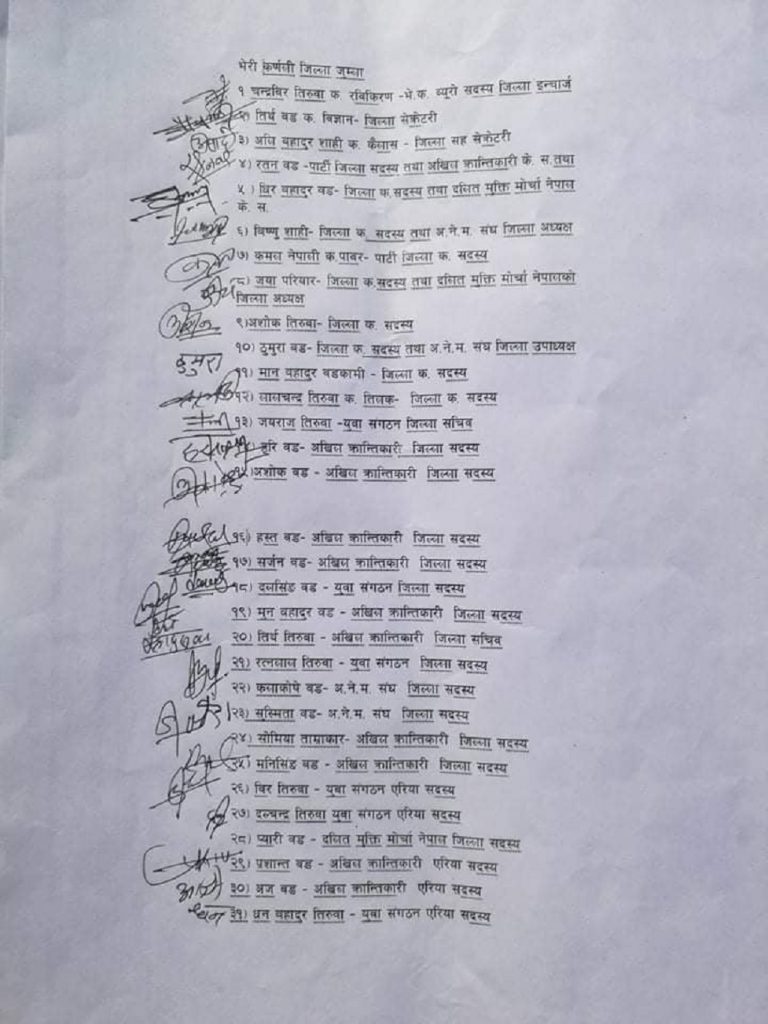 भेरी कर्णली जिल्ला जुम्ला
१ चन्द्रबिर तिरुवा क रविकिरण -भे.क. ब्यूरो सदस्य जिल्ला इन्चार्ज
२) तिर्थ वड क. बिज्ञान- जिल्ला सेक्रेटरी
३) अलि बहादुर शाही क. कैलास - जिल्ला सह सेक्रेटरी
४) रतन वड -पार्टी जिल्ला सदस्य तथा अखिल क्रान्तिकारी के. स.तथा
५ ) धिर बहादुर वड- जिल्ला क.सदस्य तथा दलित मुक्ति मोर्चा नेपाल
के. स.
६) बिष्णु शाही- जिल्ला क. सदस्य तथा अ.ने.म. संघ जिल्ला अध्यक्ष
७) कमल नेपाली क.पावर- पार्टी जिल्ला क. सदस्य
८) जया परियार- जिल्ला क.सदस्य तथा दलित मुक्ति मोर्चा नेपालको
जिल्ला अध्यक्ष
९)अशोक तिरुवा- जिल्ला क. सदस्य
१०) ठुमुरा वड- जिल्ला क. सदस्य तथा अ.ने.म. संघ जिल्ला उपाध्यक्ष
ठुमुरा
११) मान बहादुर वडकामी - जिल्ला क. सदस्य
१२) लालचन्द्र तिरुवा क. तिलक- जिल्ला क. सदस्य
१३) जयराज तिरुवा -युवा संगठन जिल्ला सचिव
हरि वड- अखिल क्रान्तिकारी जिल्ला सदस्य
१५)अशोक वड - अखिल क्रान्तिकारी जिल्ला सदस्य
१६) हस्त वड- अखिल क्रान्तिकारी जिल्ला सदस्य
१७) सर्जन वड- अखिल क्रान्तिकारी जिल्ला सदस्य
१८) दलसिंह वड - युवा संगठन जिल्ला सदस्य
१९) मुन बहादुर वड - अखिल क्रान्तिकारी जिल्ला सदस्य
२०) तिर्थ तिरुवा - अखिल क्रान्तिकारी जिल्ला सचिव
२१) रत्नलाल तिरुवा - युवा संगठन जिल्ला सदस्य
२२) वड- अ.ने.म. संघ जिल्ला सदस्य
२३) सुस्मिता वड- अ.ने.म. संघ जिल्ला सदस्य
२४) सोमिया ताम्राकार- अखिल क्रान्तिकारी जिल्ला सदस्य
२५) मनिसिंह वड - अखिल क्रान्तिकारी जिल्ला सदस्य
२६) बिर तिरुवा - युवा संगठन एरिया सदस्य
२७) दलचन्द्र तिरुवा युवा संगठन एरिया सदस्य
२८) प्यारी वड - दलित मुक्ति मोर्चा नेपाल जिल्ला सदस्य
२९) प्रशान्त वड - अखिल क्रान्तिकारी एरिया सदस्य
३०) अज वड - अखिल क्रान्तिकारी एरिया सदस्य
३१) धन बहादुर तिरुवा - युवा संगठन एरिया सदस्य